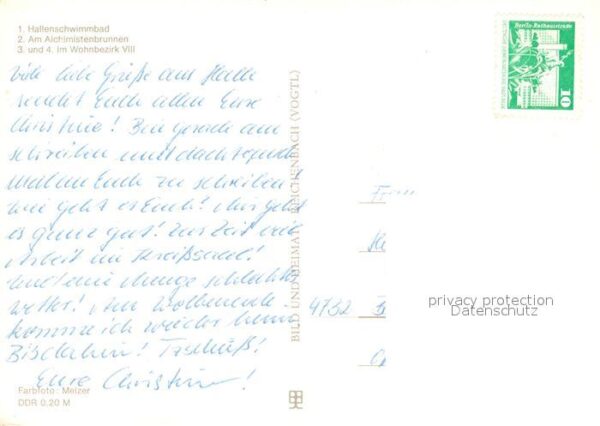 1. Hallenschwimmbad
2. Am Alchimistenbrunnen
3. und 4. im Wohnbezirk VIII
Viele liebe Grüße aus Halle
sendet Euch allen Eure
Christine! Bin gerade am
schreiben und dachte
mal an Euch zu schreiben!
wie geht es Euch! Mir geht
es ganz gut! Zur Zeit viel
Arbeit im Kreißsaal!
und eine Menge schlechtes
Wetter! Am Wochenende
komme ich wieder heim
Bis dahin! Tschüß!
Eure Christine!
Farbfoto: Melzer
DDR 0,20 M
BILD UND HEIMAT REICHENBACH (VOGTL)
4732
Berlin-Rathausstraße
10
privacy protection
Datenschutz